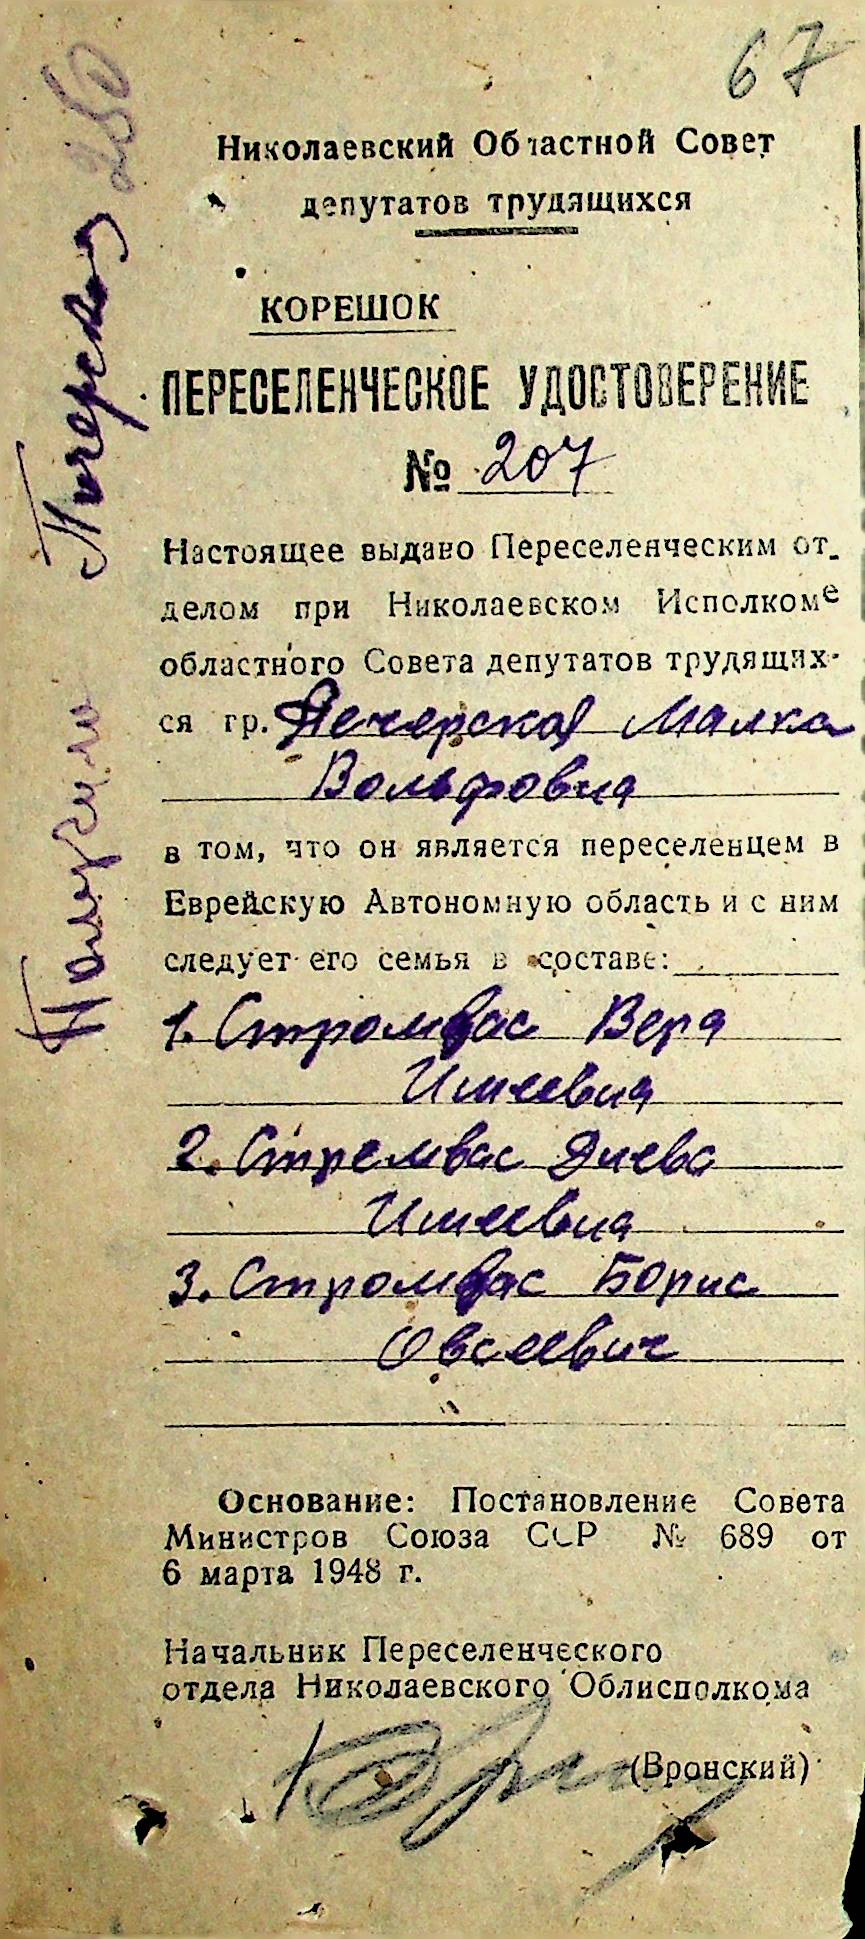 67
Николаевский Областной Совет
депутатов трудящихся
КОРЕШОК
ПЕРЕСЕЛЕНЧЕСКОЕ УДОСТОВЕРЕНИЕ
№ 207
Настоящее выдано Переселенческим от-
делом при Николаевском Исполкоме
областного Совета депутатов трудящих-
ся гр. Печерская Малка
Вольфовна
в том, что он является переселенцем в
Еврейскую Автономную область и с ним
следует его семья в составе:
1. Стромвас Вера
2. Стремвас
3. Стромвас Борис
Овсеевич
Основание: Постановление Совета
Министров Союза ССР № 689 от
6 марта 1948 г.
Начальник Переселенческого
отдела Николаевского Облисполкома
(Вронский)
Получила Печерская 250